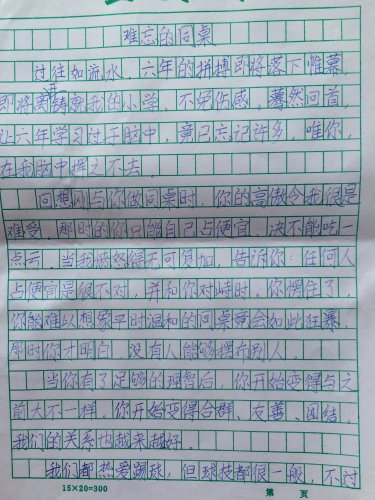 难忘的同桌
过往如流水，六年的拼搏即将落下帷幕，
即将离铸就我的小学，不免伤感。蓦然回首，
让六年学习过于脑中，竟已忘记许多，唯你，
在我脑中挥之不去。
回想刚与你做同桌时，你的高傲令我很是
难受，那时的你只能自己占便宜，决不能吃一
点亏，当我愤怒得无可复加，告诉你：任何人
占便宜是很不对，并和你对峙时，你愣住了，
你能难以想象平时温和的同桌竟会如此狂暴，
那时你才明白，没有人能够摆布别人。
当你有了足够的理智后，你开始变得与之
前大不一样。你开始变得合群、友善、团结。
我们的关系也越来越好。
我们都热爱踢球，但球技都很一般，不过
15×20=300
第 页